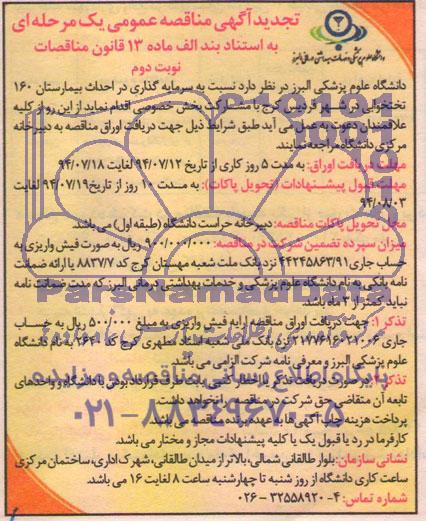 تجدیدآگهی مناقصه عمومی یک مرحله ای
به استناد بند الف ماده ۱۳ قانون مناقصات
نوبت دوم
دانشگاه علوم پزشکی و خدمات بهداشتی درمانی البرز
دانشگاه علوم پزشکی البرز در نظر دارد نسبت به سرمایه گذاری در احداث بیمارستان ۱۶۰
تختخوابی در شهر فردیس کرج با مشارکت بخش خصوصی اقدام نماید از این رو از کلیه
علاقمندان دعوت به عمل می آید طبق شرایط ذیل جهت دریافت اوراق مناقصه به دبیرخانه
مرکزی دانشگاه مراجعه نمایند.
مهلت دریافت اوراق: به مدت ۵ روز کاری از تاریخ ۹۴/۰۷/۱۲ لغایت ۹۴/۰۷/۱۸
مهلت قبول پیشنهادات (تحویل پاکات): به مدت ۱۰ روز از تاریخ ۹۴/۰۷/۱۹ لغایت
۹۴/۰۸/۰۳
محل تحویل پاکات مناقصه: دبیرخانه حراست دانشگاه (طبقه اول) می باشد.
میزان سپرده تضمین شرکت در مناقصه: ۹۰۰/۰۰۰/۰۰۰ ریال به صورت فیش واریزی به
حساب جاری ۴۴۲۴۵۸۶۳/۹۱ نزد بانک ملت شعبه مهستان کرج کد ۸۸۳۷/۷ یا ارائه ضمانت
نامه بانکی به نام دانشگاه علوم پزشکی و خدمات بهداشتی درمانی البرز که مدت ضمانت نامه
نباید کمتر از ۳ ماه باشد.
تذکر ۱: جهت دریافت اوراق مناقصه ارایه فیش واریزی به مبلغ ۵۰۰/۰۰۰ ریال به حساب
جاری ۲۱۷۷۶۹۶۰۲۱۰۰۶ نزد بانک ملی شعبه استاد مطهری کرج کد ۲۶۴۱ به نام دانشگاه
علوم پزشکی البرز و معرفی نامه شرکت الزامی می باشد.
در صورت دریافت تذکر یا اخطار کتبی یا یک طرف قرارداد بودن با دانشگاه و واحدهای
تابعه آن متقاضی حق شرکت در مناقصه را نخواهد داشت.
پرداخت هزینه چاپ آگهی ها به عهده برنده مناقصه می باشد.
کارفرما در رد یا قبول یک یا کلیه پیشنهادات مجاز و مختار می باشد.
نشانی سازمان: بلوار طالقانی شمالی، بالاتر از میدان طالقانی، شهرک اداری، ساختمان مرکزی
ساعت کاری دانشگاه از روز شنبه تا چهارشنبه ساعت ۸ لغایت ۱۶ می باشد.
شماره تماس: ۴-۳۲۵۵۸۹۲۰-۰۲۶
ParsNamadData
پایگاه اطلاع رسانی مناقصه و مزایده
۰۲۱-۸۸۳۴۹۶۷۰-۵